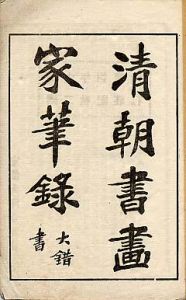 清朝書畫
家筆錄
大錯
書